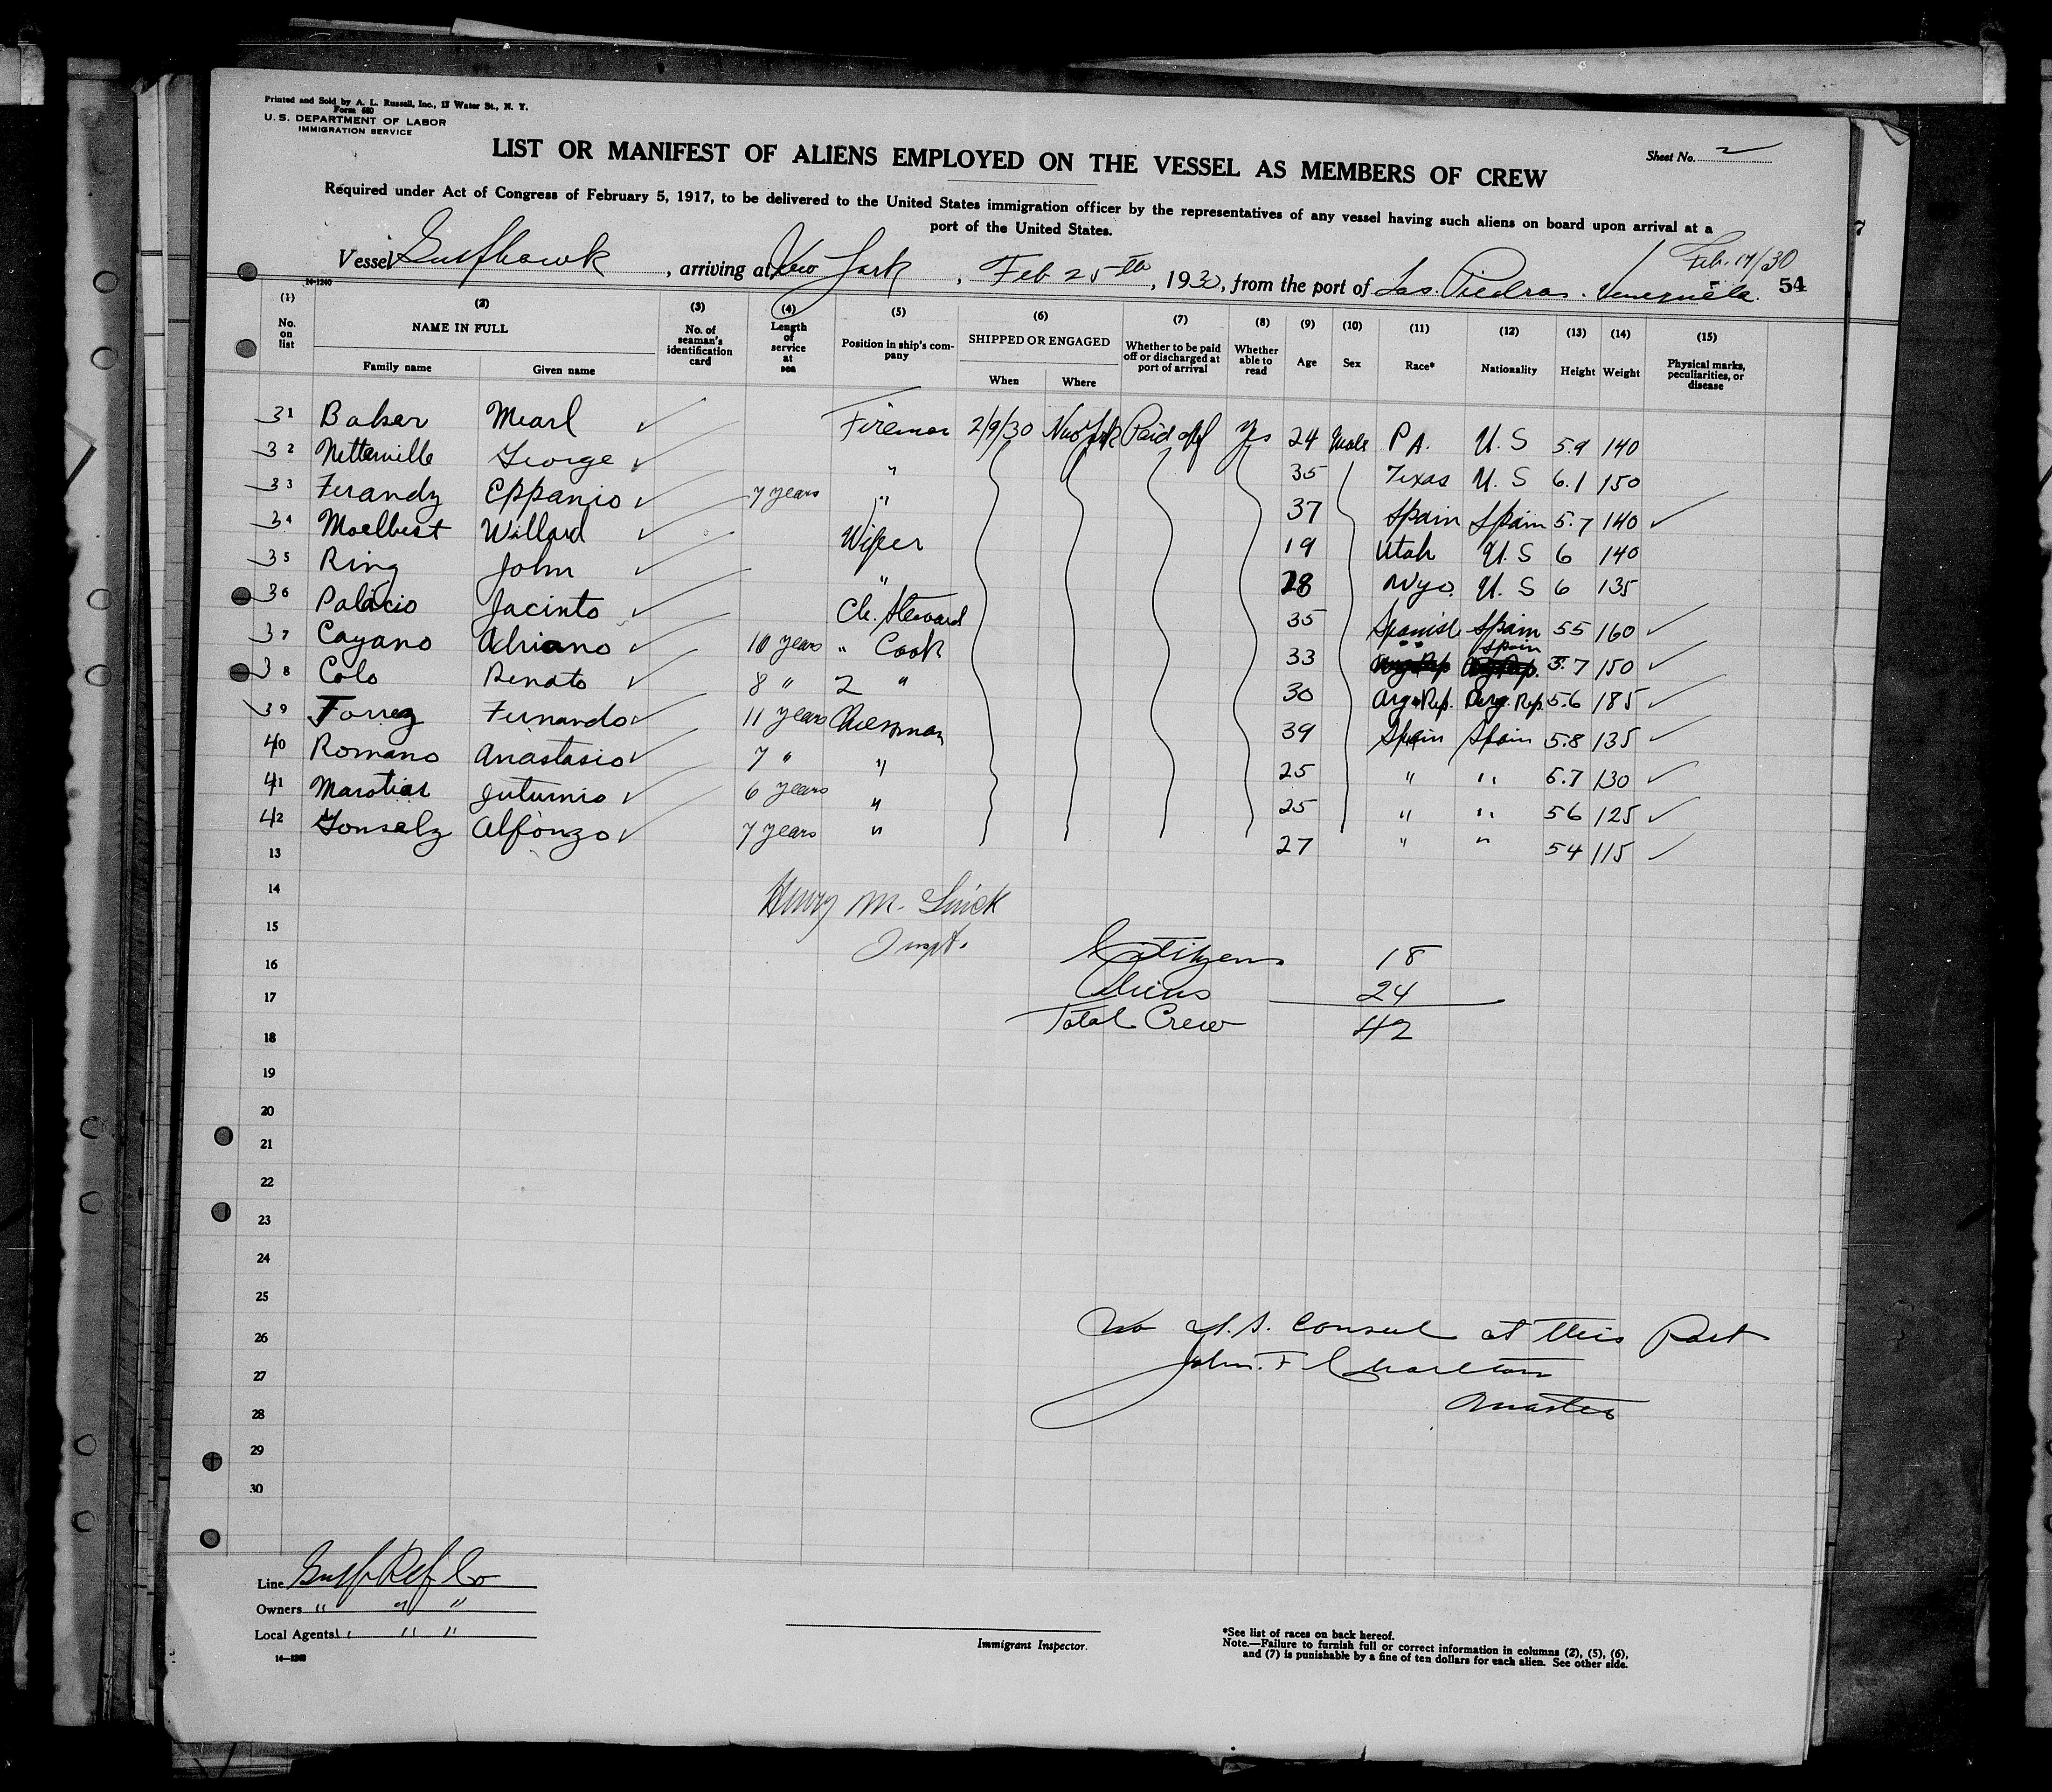 Printed and Sold by A. L. Russell, Inc., 13 Water St., N. Y.
Form 680
U. S. DEPARTMENT OF LABOR
IMMIGRATION SERVICE
Sheet No. 2
LIST OR MANIFEST OF ALIENS EMPLOYED ON THE VESSEL AS MEMBERS OF CREW
Required under Act of Congress of February 5, 1917, to be delivered to the United States immigration officer by the representatives of any vessel having such aliens on board upon arrival at a
port of the United States.
Feb. 17/30
Vessel Gulfhawk, arriving at New York, Feb 25th, 1930, from the port of Las Piedras. Venezuela. 54
14-1240
(1) No. on list (2) NAME IN FULL Family name Given name (3) No. of seaman's identification card (4) Length of service at sea (5) Position in ship's company (6) SHIPPED OR ENGAGED When Where (7) Whether to be paid off or discharged at port of arrival (8) Whether able to read (9) Age (10) Sex (11) Race* (12) Nationality (13) Height (14) Weight (15) Physical marks, peculiarities, or disease
31 Baker Mearl ✓ Fireman 2/9/30 New York Paid off Yes 24 Male PA. U. S 5.9 140
32 Netterville George ✓ " 35 Texas U. S 6.1 150
33 Ferandz Eppanio ✓ 7 years " 37 Spain Spain 5.7 140 ✓
34 Moelbest Willard ✓ Wiper 19 Utah U. S 6 140
35 Ring John ✓ " 28 Wyo. U. S 6 135
36 Palacio Jacinto ✓ Ch. Steward 35 Spanish Spain 55 160 ✓
37 Cayano Adriano ✓ 10 years " Cook 33 " " Spain 5.7 150 ✓
38 Colo Renato ✓ 8 " 2 " 30 Arg. Rep. Arg. Rep. 5.6 185 ✓
39 Torrez Fernando ✓ 11 years Messman 39 Spain Spain 5.8 135 ✓
40 Romano Anastasio ✓ 7 " " 25 " " 5.7 130 ✓
41 Marotias Juturnio ✓ 6 years " 25 " " 56 125 ✓
42 Gonselz Alfonzo ✓ 7 years " 27 " " 54 115 ✓
13
14
Henry M.
15
Inspt.
16
Citizens 18
17
Aliens 24
18
Total Crew 42
19
20
21
22
23
24
25
26
No U. S. Consul at this Port
27
John. F Charlton
28
Master
29
30
Line Gulf Ref Co
Owners " " "
Local Agents " " "
14-1240
Immigrant Inspector.
*See list of races on back hereof.
Note.—Failure to furnish full or correct information in columns (2), (5), (6),
and (7) is punishable by a fine of ten dollars for each alien. See other side.